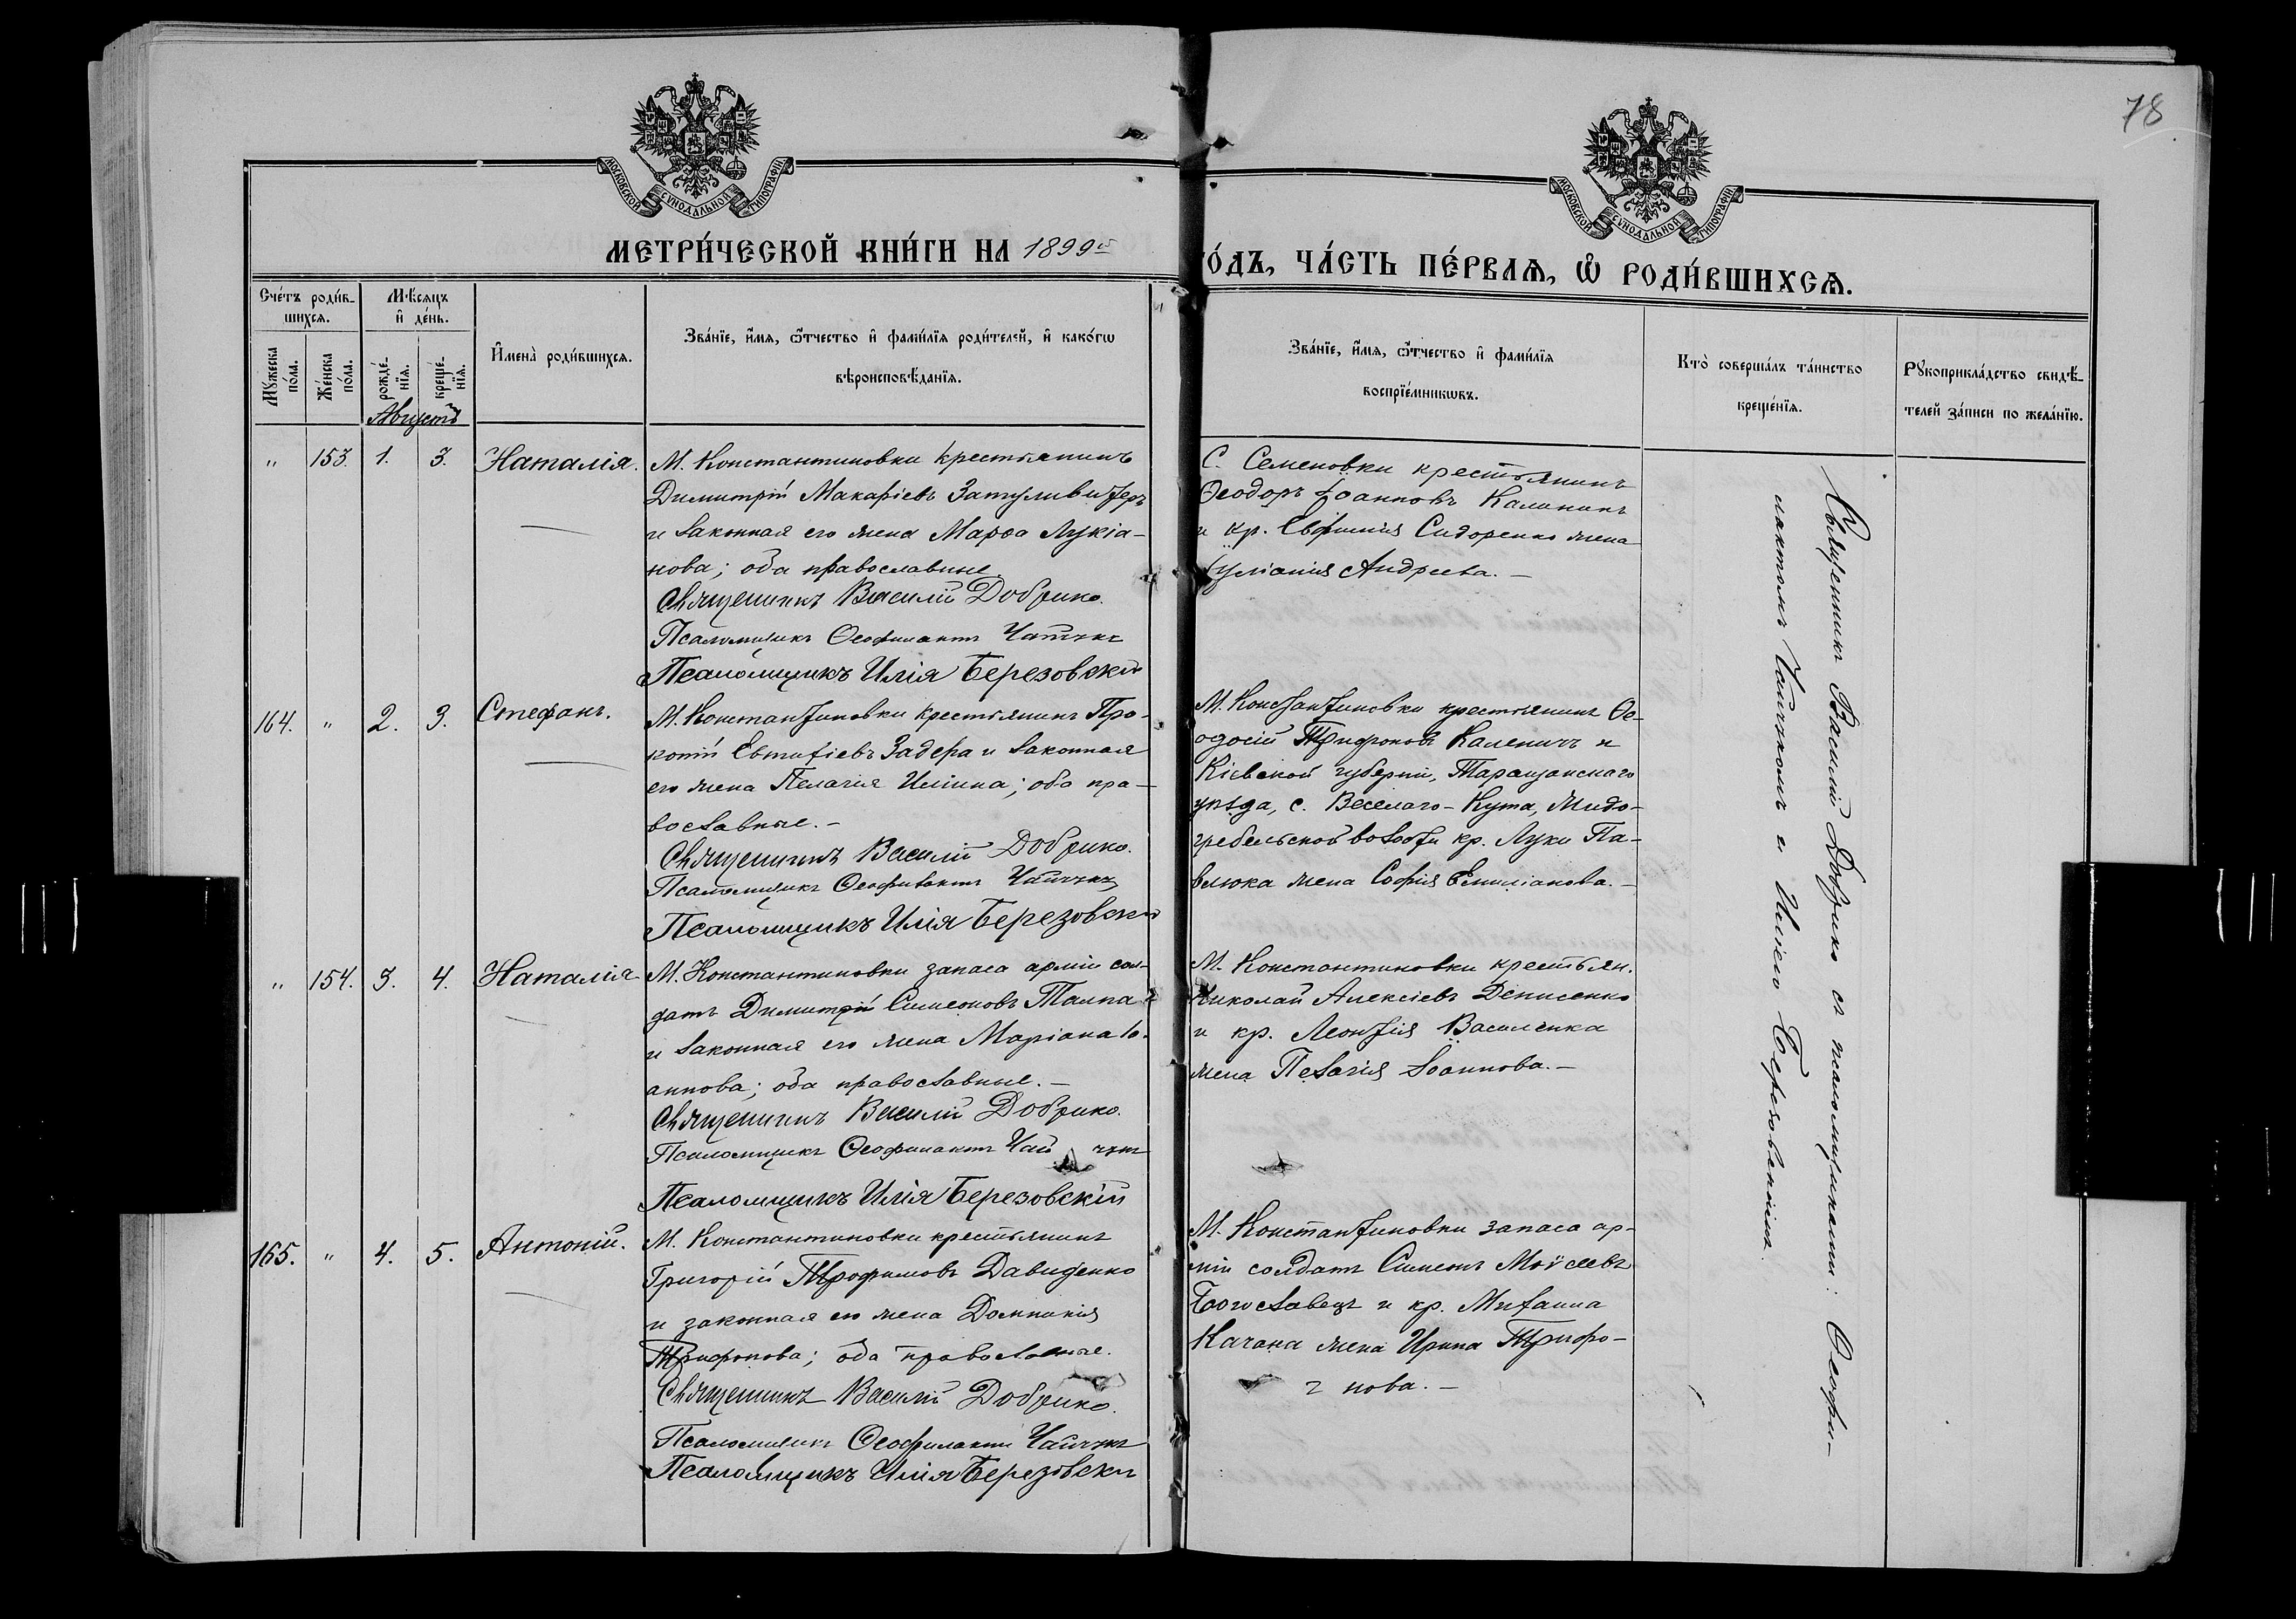 78
МОСКОВСКОЙ СѴНОДАЛЬНОЙ ТИПОГРАФІИ
МОСКОВСКОЙ СѴНОДАЛЬНОЙ ТИПОГРАФІИ
МЕТРИ́ЧЕСКОЙ КНИ́ГИ НА 1899й
ГО́ДЪ, ЧА́СТЬ ПЕ́РВАѦ, Ѡ҆ РОДИ́ВШИХСѦ.
Сче́тъ роди́в-
шихсѧ.
Мꙋжеска по́ла.
Же́нска по́ла.
Мѣ́сѧцъ
и҆ де́нь.
рожде́-
нїѧ.
креще́-
нїѧ.
Августъ
И҆мена̀ роди́вшихсѧ.
Зва́нїе, и҆́мѧ, ѻ҆́тчество и҆ фами́лїѧ роди́телей, и҆ како́гѡ
вѣроисповѣ́данїѧ.
Зва́нїе, и҆́мѧ, ѻ҆́тчество и҆ фами́лїѧ
воспрїе́мникѡвъ.
Кто̀ соверша́лъ та́инство
креще́нїѧ.
Рꙋкоприкла́дство свидѣ́-
телей за́писи по жела́нїю.
" 153. 1. 3. Наталія.
М. Константиновки крестьянинъ
Димитрій Макаріевъ
и законная его жена Марѳа Лукіа-
нова; оба православные.
Священникъ Василій Добрико.
Псаломщикъ Ѳеофилактъ Чайчукъ
Псаломщикъ Илія Березовскій
С. Семеновки крестьянинъ
Ѳеодоръ Іоанновъ Калинин
и кр. Евфимія Сидоренко жена
Іуліанія Андреева. —
164. " 2. 3. Стефанъ.
М. Константиновки крестьянинъ Про-
копій Евтихіевъ Задера и законная
его жена Пелагія Иліина; оба пра-
вославные. —
Священникъ Василій Добрико.
Псаломщикъ Ѳеофилактъ Чайчукъ
Псаломщикъ Илія Березовскій
М. Константиновки крестьянинъ Ѳе-
одосій Трифоновъ Каленичъ и
Кіевской губерніи, Таращанскаго
уѣзда, с. Веселаго-Кута,
волости кр. Луки Па-
влюка жена Софія Емиліанова. —
" 154. 3. 4. Наталія
М. Константиновки запаса арміи сол-
датъ Димитрій Симеоновъ
и законная его жена Маріана Іо-
аннова; оба православные. —
Священникъ Василій Добрико.
Псаломщикъ Ѳеофилактъ Чайчукъ
Псаломщикъ Илія Березовскій
М. Константиновки крестьян.
Николай Алексіевъ Денисенко
и кр. Леонтія Василенка
жена Пелагія Іоаннова. —
165. " 4. 5. Антоній.
М. Константиновки крестьянинъ
Григорій Трофимовъ Давиденко
и законная его жена Домникія
Трифонова; оба православные.
Священникъ Василій Добрико.
Псаломщикъ Ѳеофилактъ Чайчукъ
Псаломщикъ Илія Березовскій
М. Константиновки запаса ар-
міи солдатъ Симеонъ Моѵсеевъ
Богославецъ и кр. Михаила
Качана жена Ирина Трифо-
нова. —
Священникъ Василій Добрико съ псаломщиками: Ѳеофи-
лактомъ Чайчукомъ и Иліею Березовскимъ.